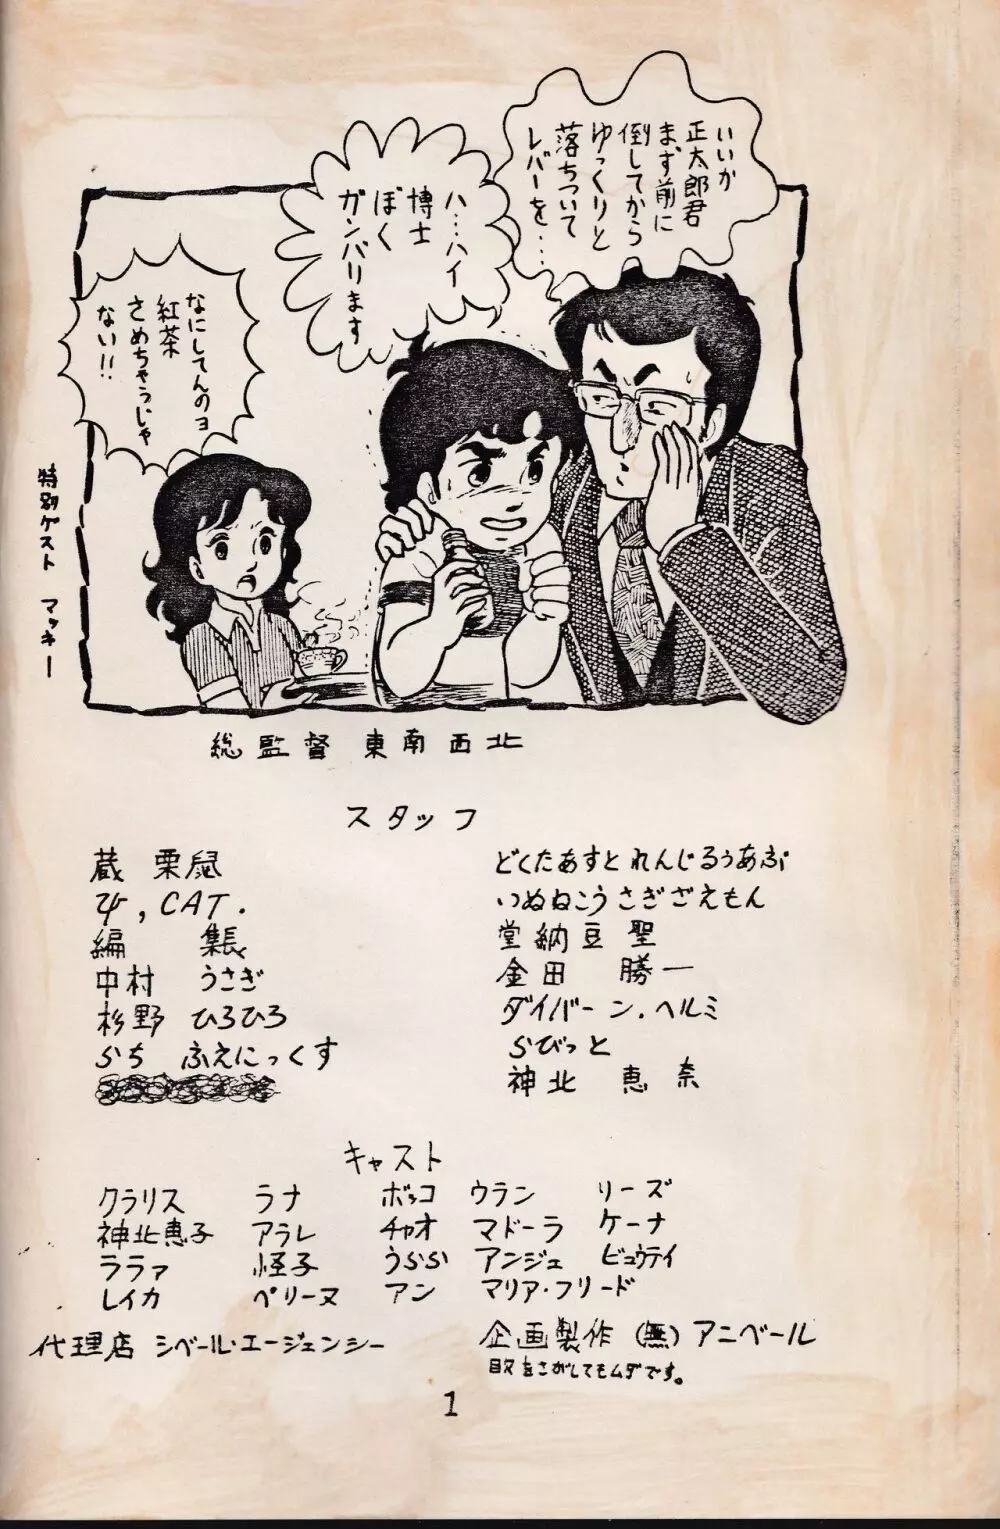 いいか
正太郎君
まず前に
倒してから
ゆっくりと
落ちついて
レバーを‥‥
ハ…ハイ
博士
ぼく
ガンバります
なにしてんのヨ
紅茶
さめちゃうじゃ
ない!!
特別ゲスト マッキー
総監督 東南西北
スタッフ
蔵 栗鼠
, CAT.
編 集長
中村 うさぎ
杉野 ひろひろ
らち ふえにっくす
どくたあすとれんじるぅあぶ
いぬねこうさぎざえもん
堂納豆聖
金田 勝一
ダイバーン・ヘルミ
らびっと
神北 恵奈
キャスト
クラリス ラナ ボッコ ウラン リーズ
神北恵子 アラレ チャオ マドーラ ケーナ
ララァ 怪子 うらら アンジェ ビュウティ
レイカ ペリーヌ アン マリア・フリード
代理店 シベール・エージェンシー
企画製作 (無) アニベール
目次をさがしてもムダです。
1